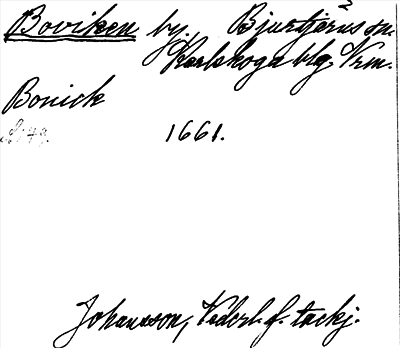 Boviken by. Bjurtjärns sn.
Karlskoga blg, Vrm.
Bonick
1661.
Johansson, Nederl. f. tackj.